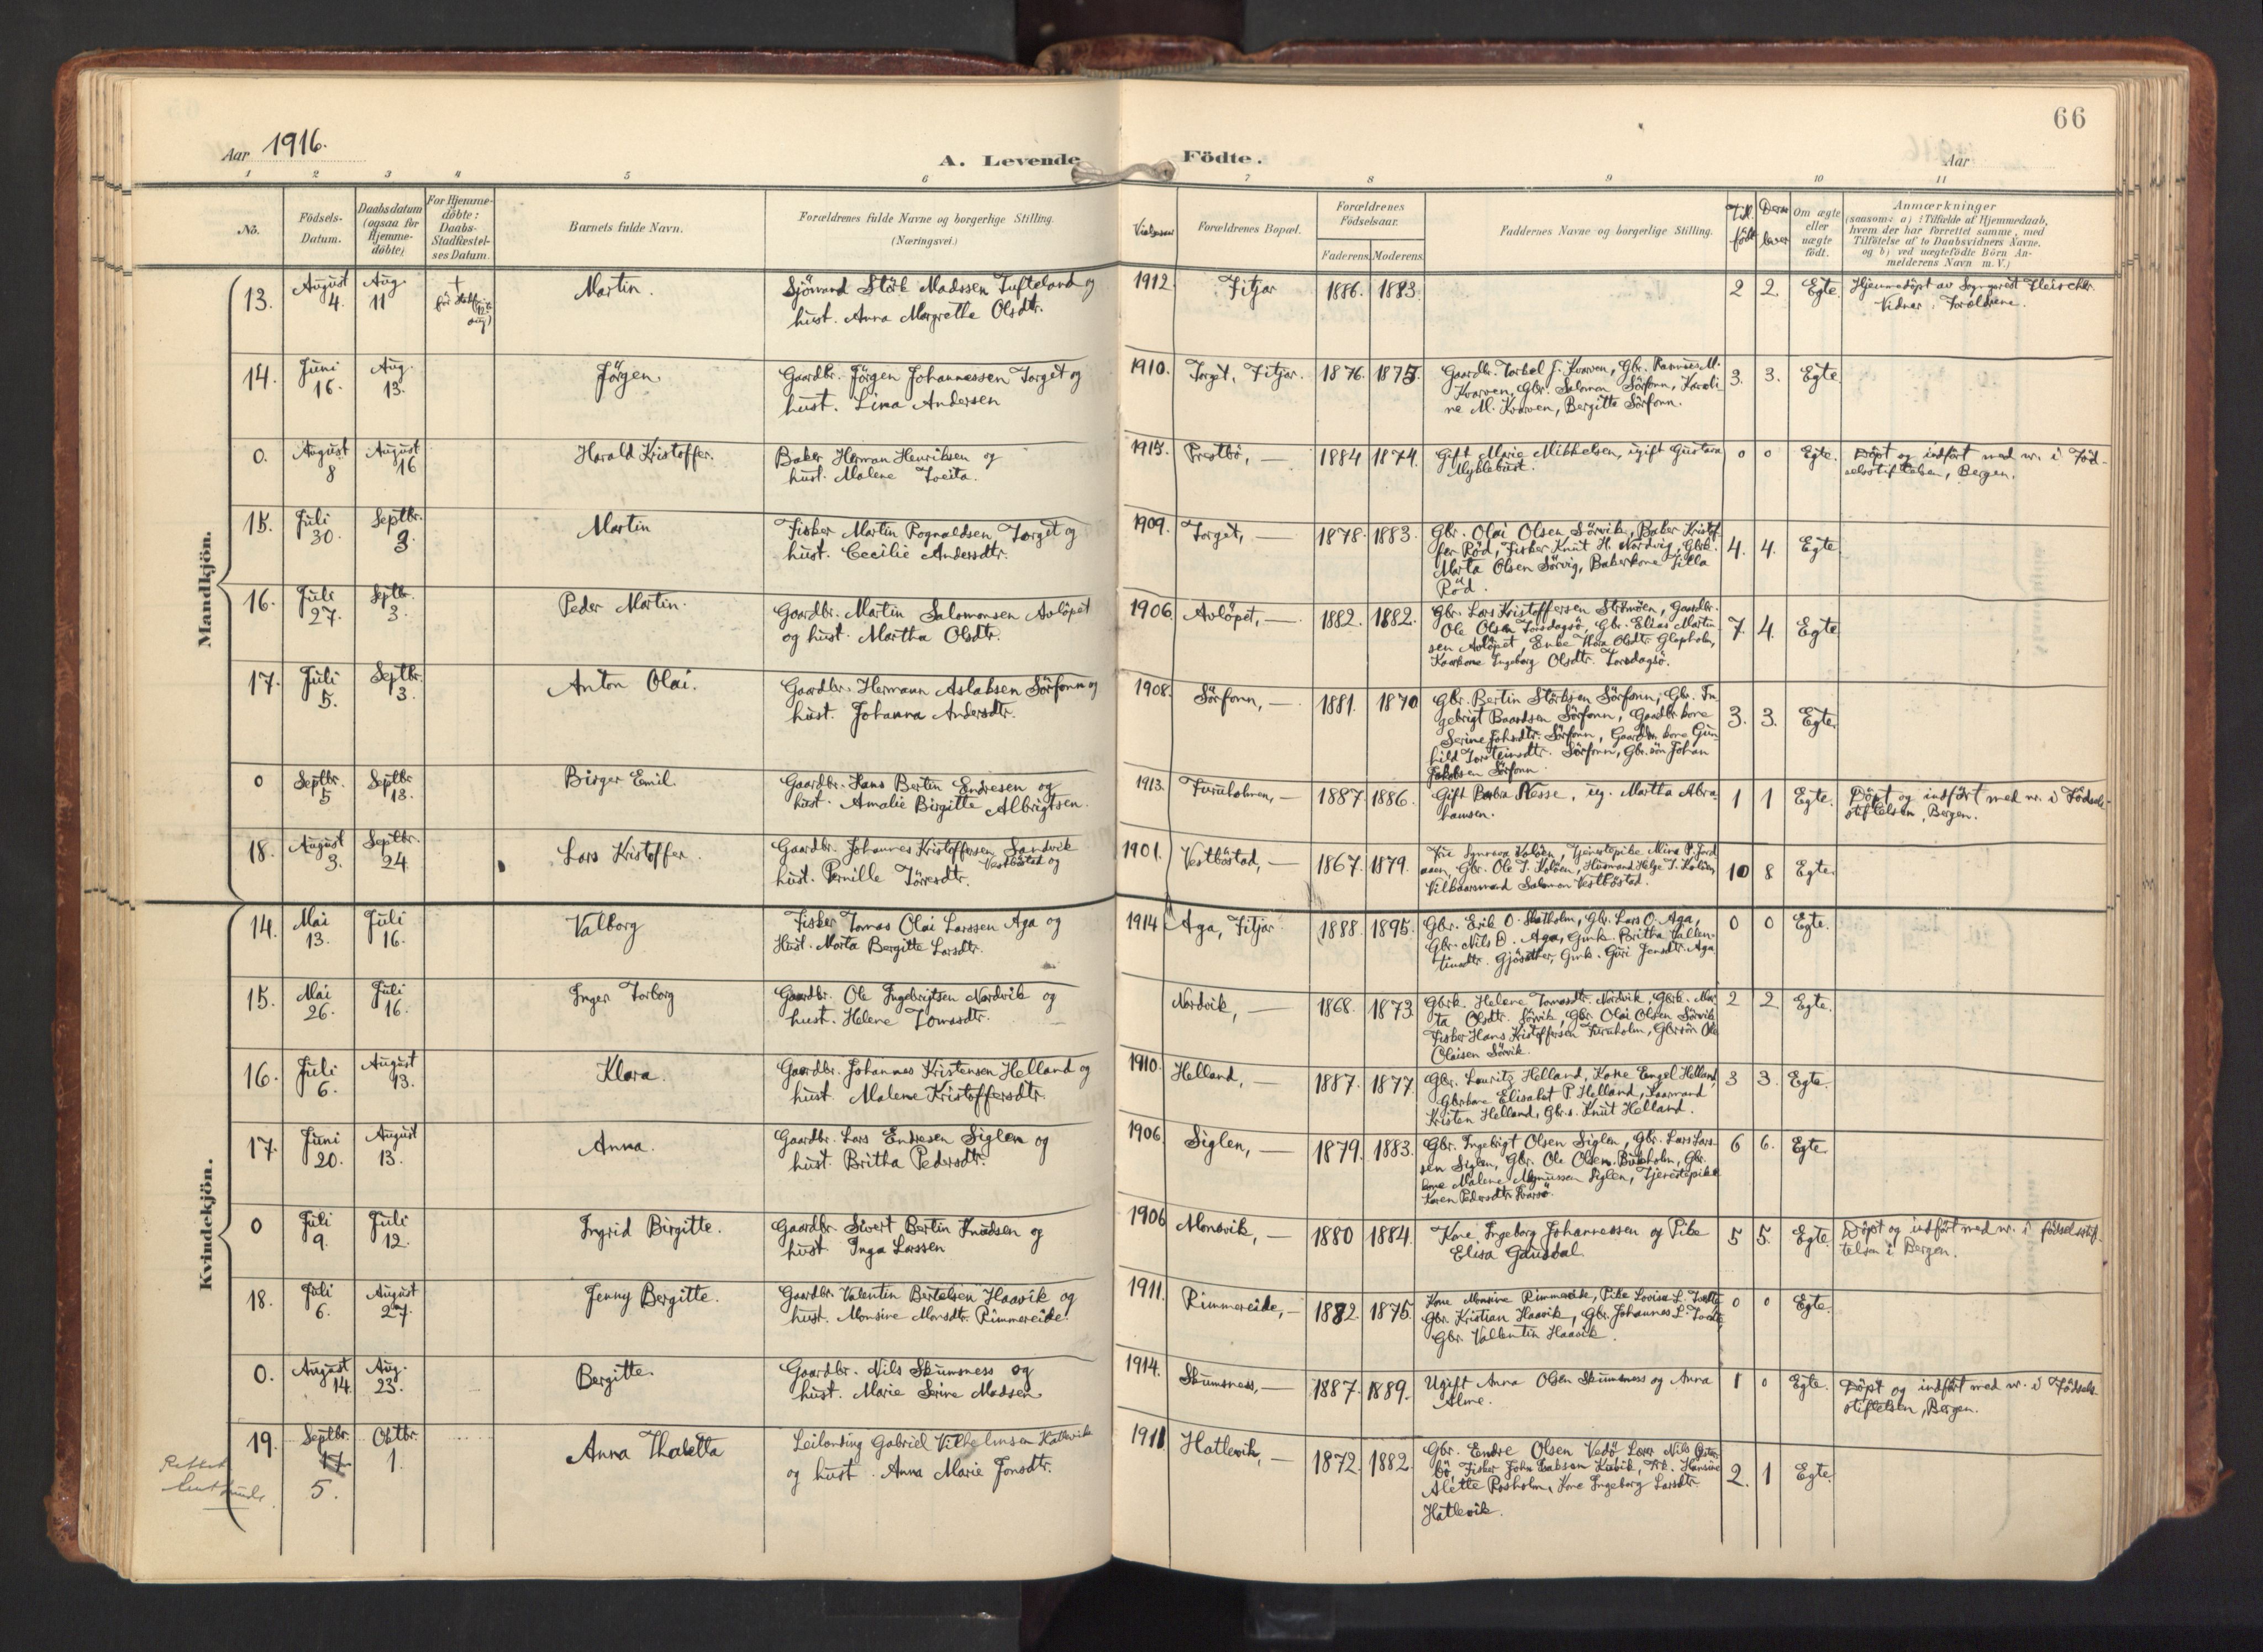 66
Aar 1916.
A. Levende Födte.
Aar
1 2 3 4 5 6 7 8 9 10 11
No.
Födsels-Datum.
Daabsdatum (ogsaa for Hjemme-döbte)
For Hjemme-döbte: Daabs-Stadfæstel-ses Datum.
Barnets fulde Navn.
Forældrenes fulde Navne og borgerlige Stilling.
(Næringsvei.)
Vielsesaar
Forældrenes Bopæl.
Forældrenes Födselsaar.
Faderens Moderens
Faddernes Navne og borgerlige Stilling.
Till. födt
Derav lever
Om ægte eller uægte födt.
Anmærkninger
(saasom: a) i Tilfælde af Hjemmedaab,
hvem der har forrettet samme, med
Tilföielse af to Daabsvidners Navne.
og b) ved uægtefödte Börn An-
melderens Navn m. V.)
Mandkjön.
13. August 4. Aug. 11 + för Stadf. aug) Martin. Sjömand Störk Madssen Tufteland og
hust. Anna Margrethe Olsdtr.
1912. Fitjar 1886. 1883. 2 2. Egte. Hjemmedöpt av Sogneprest Fleischer.
Vidner: Forældrene.
14. Juni 16. Aug. 13. Jörgen. Gaardbr. Jörgen Johannessen Torget og
hust. Lina Andersen
1910. Torget, Fitjar. 1876. 1875. Gaardbr. Torkel J. Kvarven, Gbr. Rasmus M.
Kvarven, Gbr. Salomon Sörfonn, Karoli-
ne M. Kvarven, Bergitte Sörfonn.
3. 3. Egte
0. August 8 August 16 Harald Kristoffer. Baker Herman Henriksen og
hust. Malene Tveita.
1915. Prestbö, — 1884 1874. Gift Marie Mikkelsen, ugift Gustava
Myklebust.
0 0 Egte. Döpt og indfört med nr. i Föd-
selsstiftelsen, Bergen.
15. Juli 30. Septbr. 3. Martin Fisker Martin Rognaldsen Torget og
hust. Cecilie Andersdtr.
1909. Torget, — 1878. 1883. Gbr. Olai Olsen Sörvik, Baker Kristof-
fer Röd, Fisker Knut H. Nordvig, Gbrk.
Marta Olsen Sörvig, Bakerkone Tilla
Röd.
4. 4. Egte
16. Juli 27. Septbr. 3. Peder Martin. Gaardbr. Martin Salomonsen Avlöpet
og hust. Martha Olsdtr.
1906 Avlöpet, — 1882. 1882. Gbr. Lars Kristoffersen Strömöen, Gaardbr.
Ole Olsen Torsdagsö, Gbr. Elias Martin
sen Avlöpet, Enke Olsdtr. Glopholm,
Kaarkone Ingeborg Olsdtr. Torsdagsö.
7. 4. Egte
17. Juli 5. Septbr. 3. Anton Olai. Gaardbr. Hermann Aslaksen Sörfonn og
hust. Johanna Andersdtr.
1908. Sörfonn, — 1881. 1870 Gbr. Bertin Störksen Sörfonn, Gbr. In-
gebrigt Baardsen Sörfonn, Gaardbr. kone
Serine Johsdtr. Sörfonn, Gaardbr. kone Gun-
hild Torsteinsdtr. Sörfonn, Gbr. sön Johan
Jakobsen Sörfonn.
3. 3. Egte
0 Septbr. 5 Septbr. 13. Birger Emil. Gaardbr. Hans Bertin Endresen og
hust. Amalie Birgitte Albrigtsen.
1913. Furuholmen, — 1887. 1886. Gift Nesse, ug. Martha Abra-
hamsen.
1 1 Egte. Döpt og indfört med nr. i Födsels-
stiftelsen, Bergen.
18. August 3. Septbr. 24. Lars Kristoffer. Gaardbr. Johannes Kristoffersen Sandvik
Vestböstad og
hust. Pernille Törresdtr.
1901. Vestböstad, — 1867. 1879. Koløen, Tjenestepike
Gbr. Ole T. Kolöen, Husmand Helge T. Kolöen,
Vilkaarsmand Salomon Vestböstad.
10 8 Egte
Kvindekjön.
14. Mai 13. Juli 16. Valborg Fisker Tomas Olai Larssen Aga og
Hust. Marta Bergitte Larsdtr.
1914 Aga, Fitjar 1888. 1895. Gbr. Erik O. Skatholm, Gbr. Lars O. Aga,
Gbr. Nils O. Aga, Gmk. Britha Vallen-
tinsdtr. Gjösæther, Gmk. Guri Jensdtr. Aga
0 0 Egte.
15. Mai 26. Juli 16. Inger Torborg Gaardbr. Ole Ingebrigtsen Nordvik og
hust. Helene Tomasdtr.
Nordvik, — 1868. 1873. Gbrk. Helene Tomasdtr. Nordvik, Gbrk. Mar-
ta Olsdtr. Sörvik, Gbr. Olai Olsen Sörvik
Fisker Hans Kristoffersen Furuholm, Gbrsön Ole
Olaisen Sörvik.
2 2. Egte.
16. Juli 6. August 13. Klara. Gaardbr. Johannes Kristensen Helland og
hust. Malene Kristoffersdtr.
1910. Helland, — 1887. 1877 Gbr. Lauritz Helland, Kone Engel Helland,
Gbrkone Elisabet P. Helland, Kaarmand
Kristen Helland, Gbr.s. Knut Helland.
3 3. Egte.
17. Juni 20. August 13. Anna. Gaardbr. Lars Endresen Siglen og
hust. Britha Pedersdtr.
1906. Siglen, — 1879. 1883. Gbr. Ingebrigt Olsen Siglen, Gbr. Lars Lars-
sen Siglen, Gbr. Ole Olsen Gbr.
kone Malene Magnussen Siglen, Tjenestepike
Karen Pedersdtr.
6 6. Egte.
0 Juli 9. Juli 12. Ingrid Birgitte. Gaardbr. Sivert Bertin Knudsen og
hust. Inga Larssen
1906 Monsvik, — 1880 1884. Kone Ingeborg Johannessen og Pike
Elisa Gausdal.
5 5. Egte. Döpt og indfört med nr. i födselsstif-
telsen i Bergen.
18. Juli 6. August 27. Jenny Bergitte. Gaardbr. Valentin Bertelsen Haavik og
hust. Monsine Monsdtr. Rimmereide.
1911. Rimmereide, — 1882. 1875. Kone Monsine Rimmereide, Pike Lovise L. Tveita,
Gbr. Kristian Haavik, Gbr. Johannes L. Tveita,
Gbr. Vallentin Haavik.
0 0 Egte.
0. August 14. Aug. 23. Bergitte. Gaardbr. Nils Skumsness og
hust. Marie Serine Madsen
1914. Skumsness, — 1887. 1889. Ugift Anna Olsen Skumsness og Anna
Alme.
1 0 Egte. Döpt og indfört med nr. i Födsels-
stiftelsen, Bergen.
19. Septbr. 17 5. Oktbr. 1. Anna Thaletta Leilending Gabriel Vilhelmsen Hatlevik
og hust. Anna Marie Jonsdtr.
1911 Hatlevik, — 1872. 1882. Gbr. Endre Olsen Vedö Lærer Nils
Fisker John
Alette Rosholm, Kone Ingeborg Larsdtr.
Hatlevik.
2. 1 Egte.
Rettet